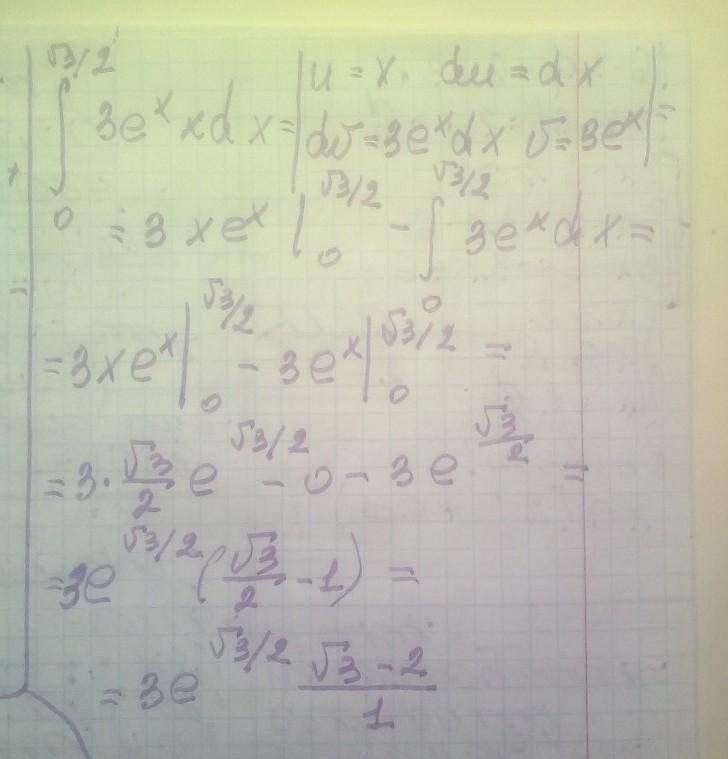 ∫_0^{√3/2} 3e^x x dx = | u = x du = dx
dv = 3e^x dx v = 3e^x | =
= 3xe^x |_0^{√3/2} - ∫_0^{√3/2} 3e^x dx =
= 3xe^x |_0^{√3/2} - 3e^x |_0^{√3/2} =
= 3 · √3/2 e^{√3/2} - 0 - 3e^{√3/2} =
= 3e^{√3/2} (√3/2 - 1) =
= 3e^{√3/2} (√3 - 2)/1